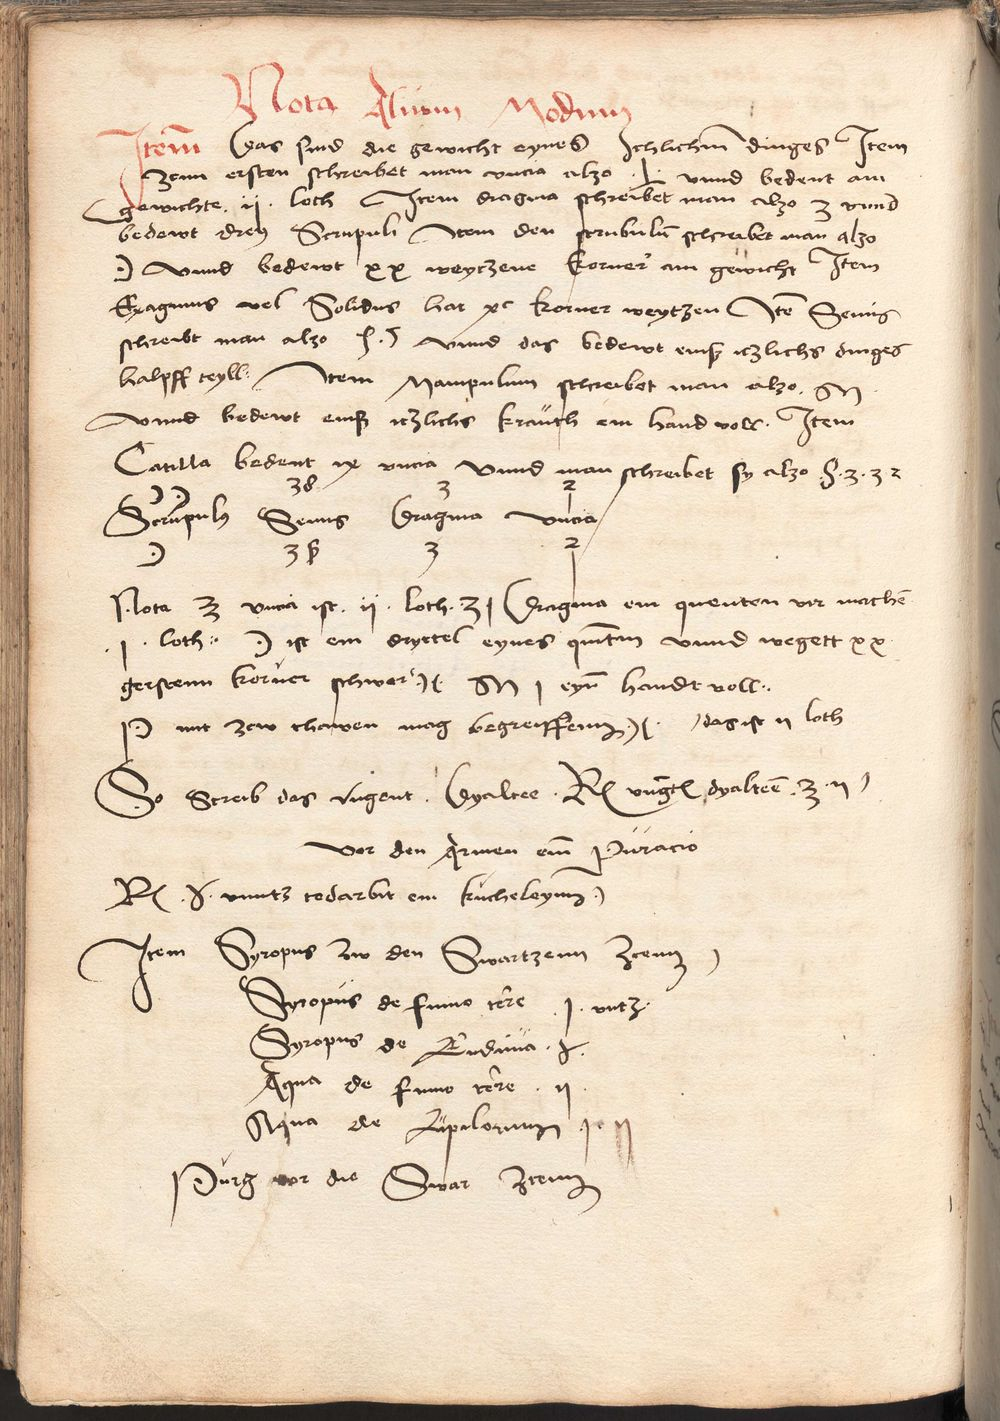 Nota Alium Modum
Item Das sind die gewicht eynes Ichlichn dinges Item
zenn ersten schreibet man vncia alzo ℥ vnnd bedeut am
gewichte ij loth Item dragma schreibet man alzo ʒ vnnd
bedewt drey Scrupuli Item den scrubulū schreibet man alzo
℈ Vnnd bedewt xx weytzene Korner am gewicht Item
vel Solidus hat korner weytzen Itē Semis
schreibt man alzo vnnd das bedewt einß iczlichs dinges
halpff teyll Item Manipulum schreibet man alzo M
Vnnd bedewt einß iczlichs krauth ein hand voll Item
bedeut ix vncia Vnnd man schreibet sy alzo
Scrupulus Semis Dragma Vncia
℈ ʒß ʒ ℥
Nota ℥ vncia ist ij loth ʒ j Dragma ein quenten vir machē
j loth ℈ ist ein dryttel eynes quintin vnnd wegett xx
gerstenn korner schwer M j eyn handt voll
P mit zcw mag begreiffenn das ist ij loth
So Screib das Vngent Dyaltee ℞ dyalteē ℥ ij
Vor den Armen ein Puracio
℞ vnntz ein kucheleynn
Item Syropus zw den Swartzenn
Syropus de fumo terre j vntz
Syropus de Endiuia
Aqua de fumo terre ij
Aqua de Lupilorum
Purg vor die Swar